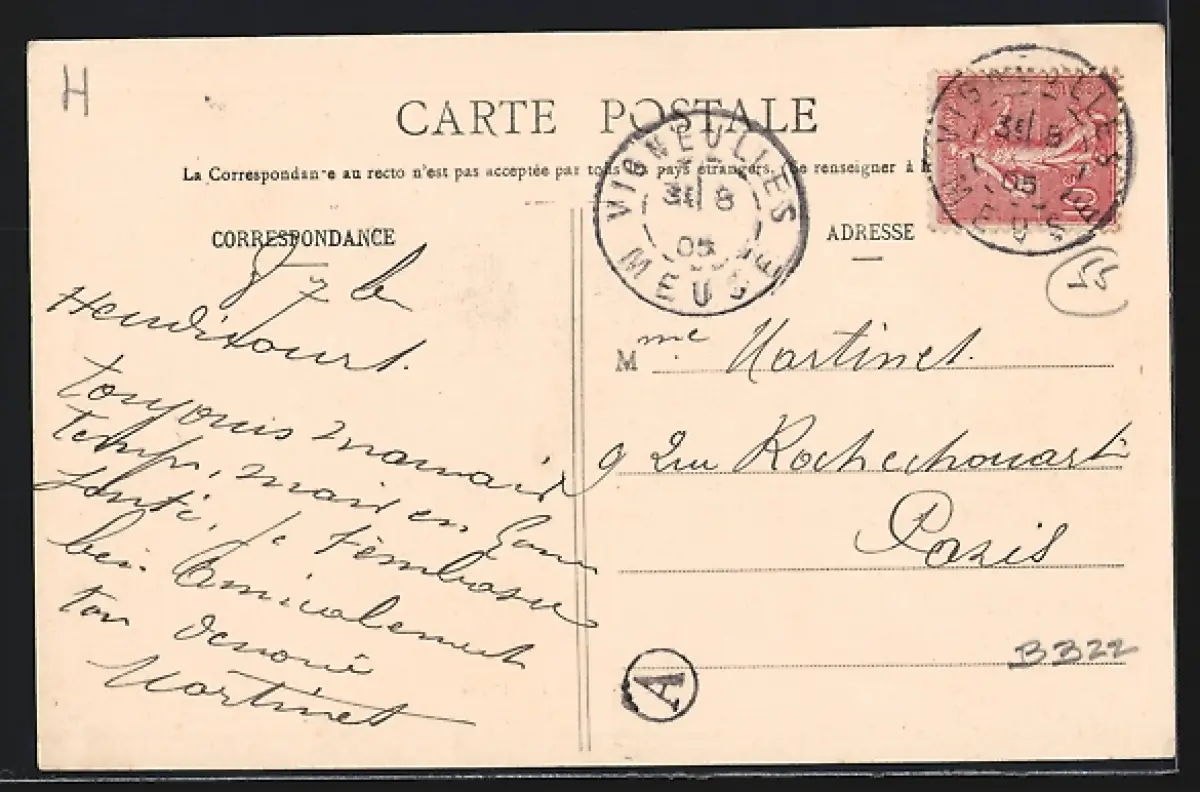 H
CARTE POSTALE
La Correspondance au recto n'est pas acceptée par tous les pays étrangers. (Se renseigner à
VIGNEULLES
31 8
05
MEUSE
VIGNEULLES
31 8
05
MEUSE
10c
CORRESPONDANCE
ADRESSE
55
Heudicourt.
toujours mauvais
temps, mais en bonne
santé, je t'embrasse
bien amicalement
ton dévoué
Martinet
Mme Martinet
9 Rue Rochechouart
Paris
A
B322